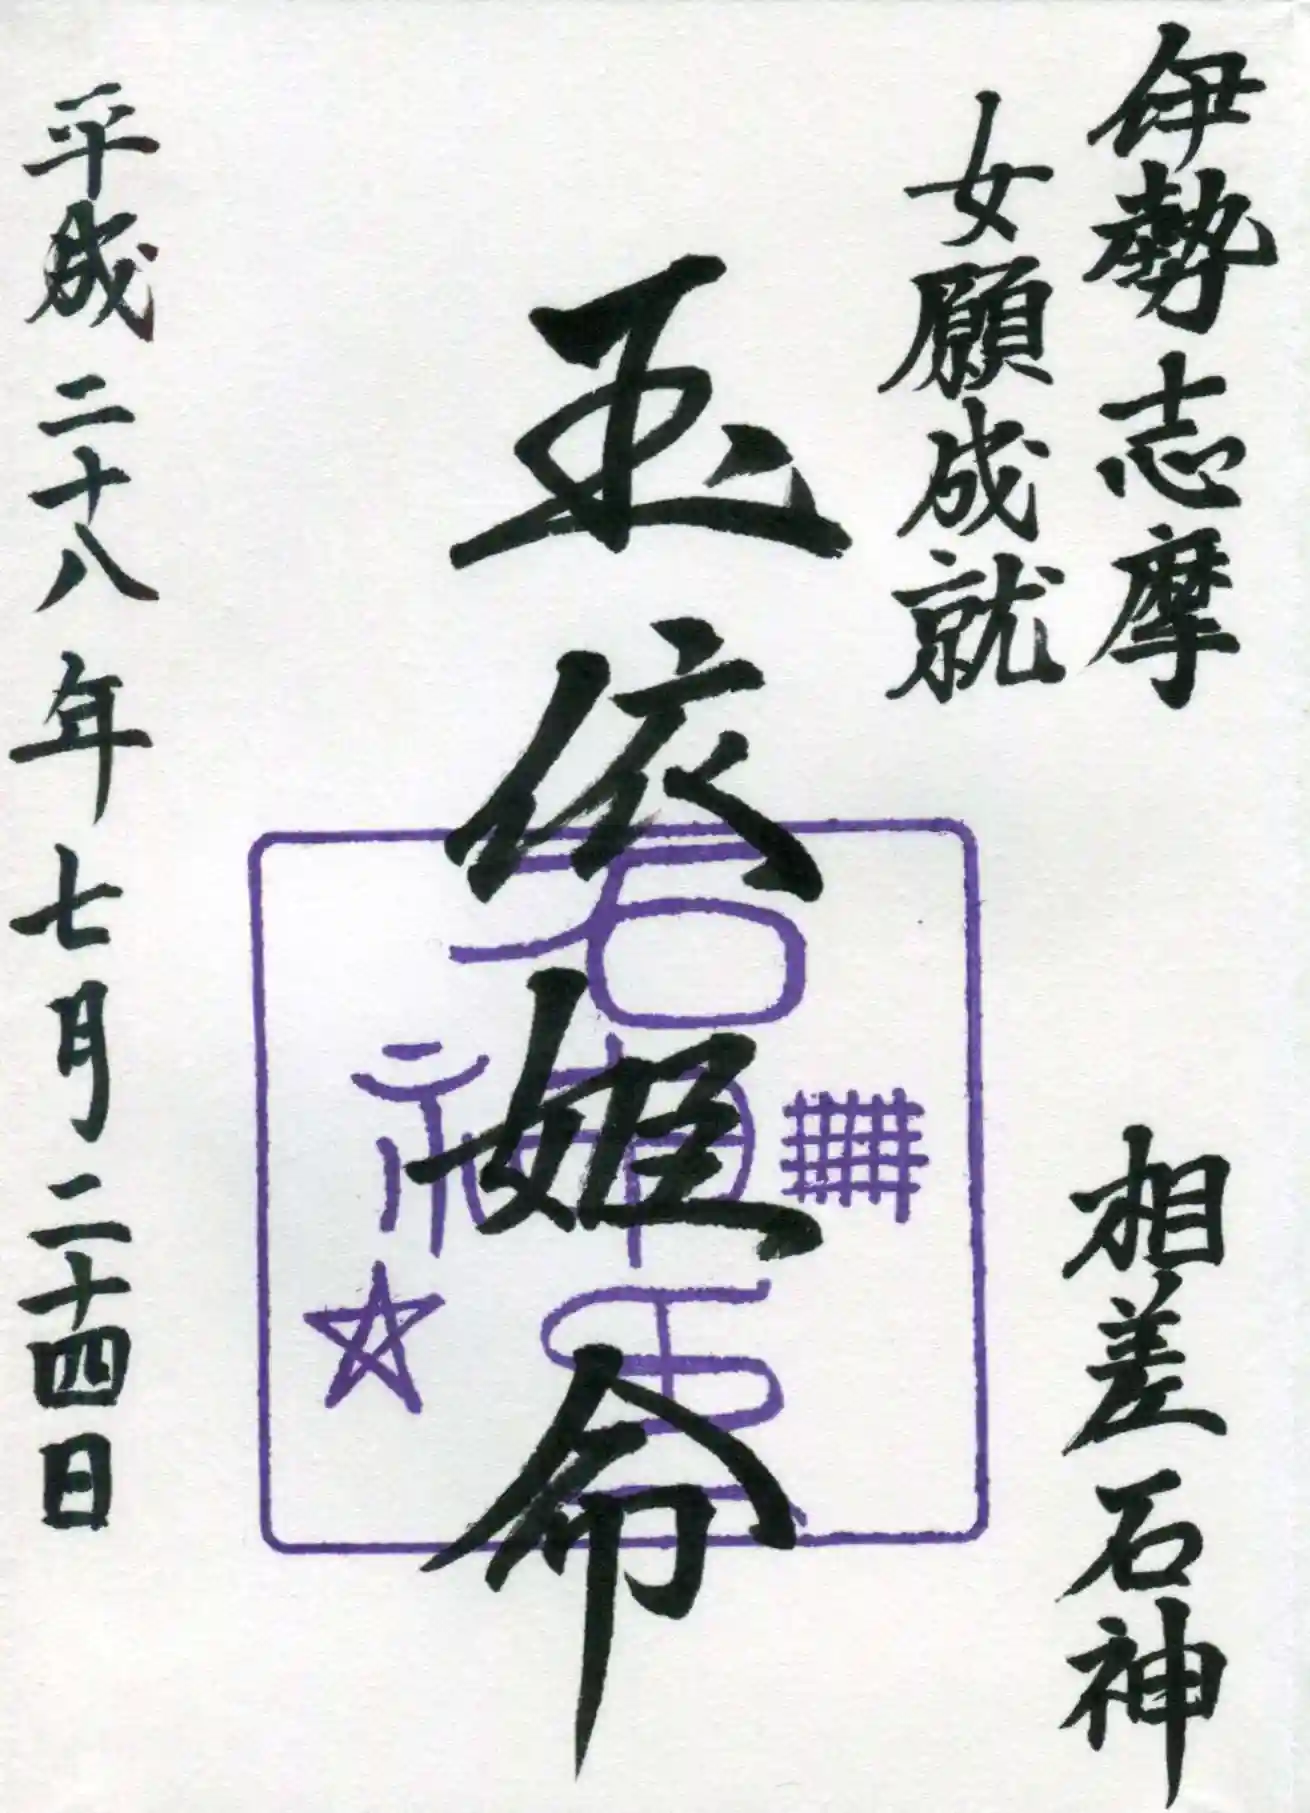 伊勢志摩 相差石神
女願成就
玉依姫命
石神
平成二十八年七月二十四日